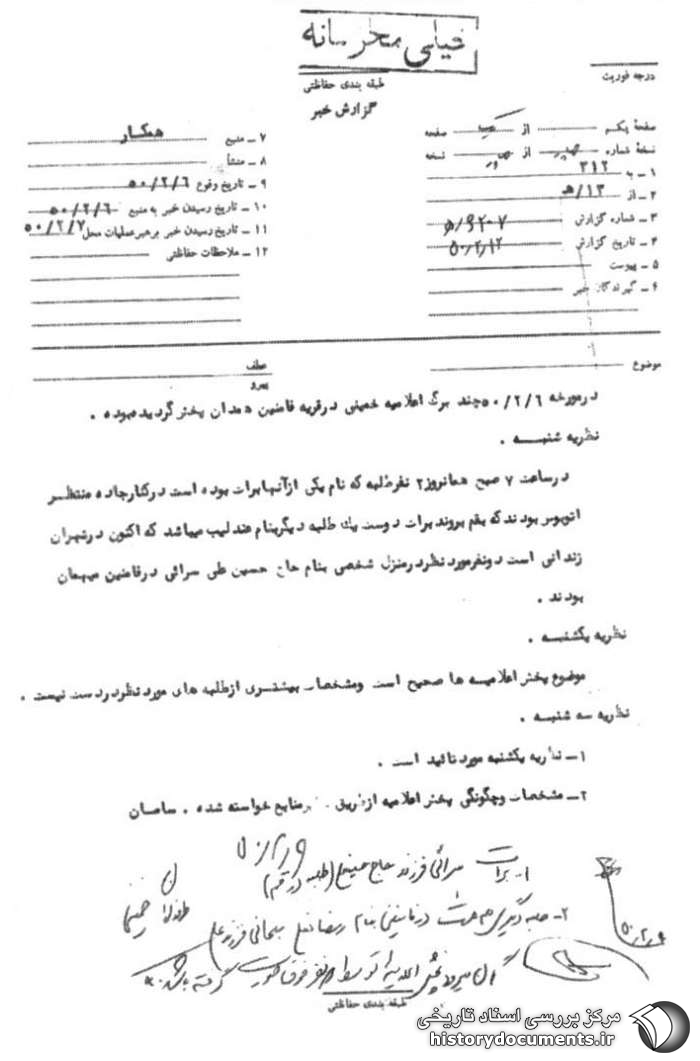 خیلی محرمانه
طبقه بندی حفاظتی
گزارش خبر
درجه فوریت
صفحهٔ یکم از یک صفحه
نسخهٔ شماره از نسخه
۱ – به ۳۱۲
۲ – از ۱۳/ﻫ
۳ – شماره گزارش
۴ – تاریخ گزارش ۵۰/۲/۱۲
۵ – پیوست
۶ – گیرندگان خبر
۷ – منبع همکار
۸ – منشأ
۹ – تاریخ وقوع ۵۰/۲/۶
۱۰ – تاریخ رسیدن خبر به منبع ۵۰/۲/۶
۱۱ – تاریخ رسیدن خبر برهبر عملیات محل ۵۰/۲/۷
۱۲ – ملاحظات حفاظتی
موضوع
عطف
پیرو
در مورخه ۵۰/۲/۶ چند برگ اعلامیه خمینی در قریه فامنین همدان پخش گردیده بوده .
نظریه شنبه .
در ساعت ۷ صبح همانروز ۲ نفر طلبه که نام یکی از آنها برات بوده است در کنار جاده منتظر
اتوبوس بودند که بقم بروند برات دوست یک طلبه دیگر بنام عندلیب میباشد که اکنون در تهران
زندانی است دونفر مورد نظر در منزل شخصی بنام حاج حسین علی سرائی در فامنین میهمان
بودند .
نظریه یکشنبه .
موضوع پخش اعلامیه ها صحیح است و مشخصات بیشتری از طلبه های مورد نظر در دست نیست .
نظریه سه شنبه .
۱ – نظریه یکشنبه مورد تائید است .
۲ – مشخصات و چگونگی پخش اعلامیه از طریق منابع خواسته شده . ساسان
۱ – برات سرائی فرزند حاج حسینعلی (طلبه در قم)
طرفدار خمینی
۲ – طلبه دیگری هم هست در فامنین بنام رضا سبحانی فرزند علی
گمان میرود پخش اعلامیه توسط نفر فوق صورت گرفته باشد.
۵۰/۲/۹
طبقه بندی حفاظتی
مرکز بررسی اسناد تاریخی
historydocuments.ir